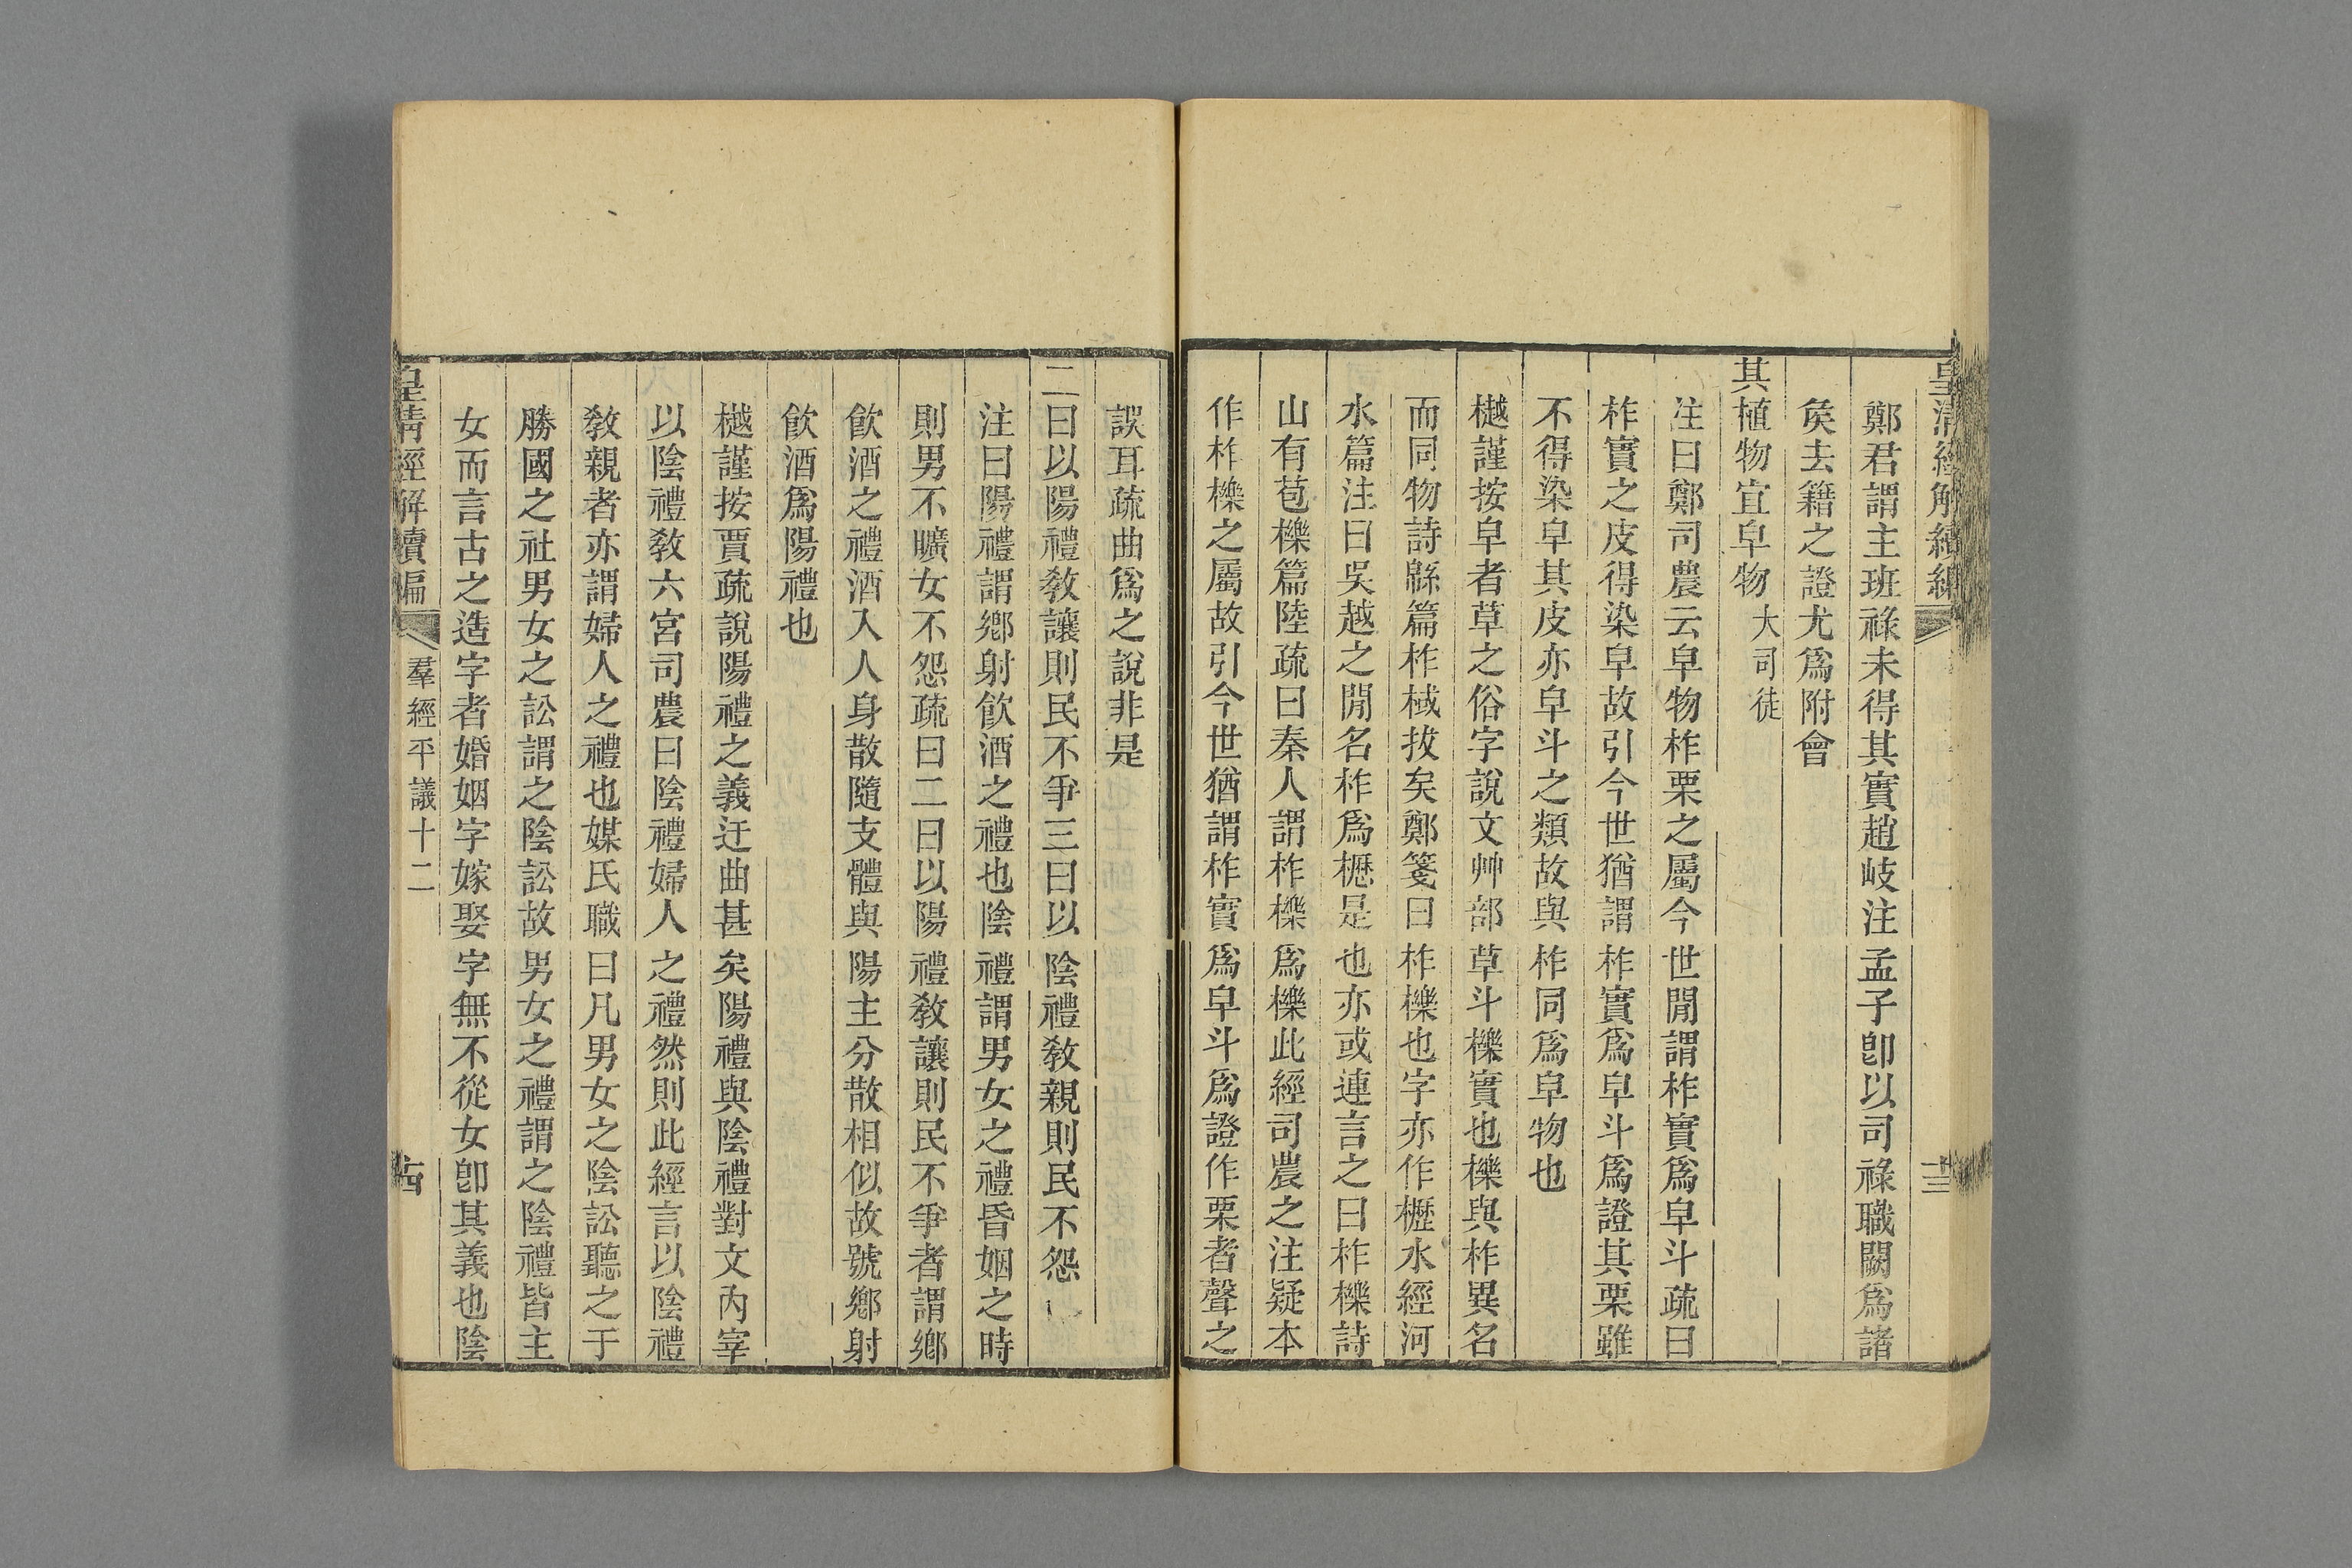 皇清經解續編
十三
鄭君謂主班祿未得其實趙岐注孟子卽以司祿職闕爲諸
矦去籍之證尤爲附會
其植物宜皁物大司徒
注曰鄭司農云皁物柞栗之屬今世閒謂柞實爲皁斗疏曰
柞實之皮得染皁故引今世猶謂柞實爲皁斗爲證其栗雖
不得染皁其皮亦皁斗之類故與柞同爲皁物也
樾謹按皁者草之俗字說文艸部草斗櫟實也櫟與柞異名
而同物詩緜篇柞棫拔矣鄭箋曰柞櫟也字亦作櫪水經河
水篇注曰吳越之閒名柞爲櫪是也亦或連言之曰柞櫟詩
山有苞櫟篇陸疏曰秦人謂柞櫟爲櫟此經司農之注疑本
作柞櫟之屬故引今世猶謂柞實爲皁斗爲證作栗者聲之
誤耳疏曲爲之說非是
二曰以陽禮敎讓則民不爭三曰以陰禮敎親則民不怨
注曰陽禮謂鄉射飮酒之禮也陰禮謂男女之禮昏姻之時
則男不曠女不怨疏曰二曰以陽禮敎讓則民不爭者謂鄉
飮酒之禮酒入人身散隨支體與陽主分散相似故號鄉射
飮酒爲陽禮也
樾謹按賈疏說陽禮之義迂曲甚矣陽禮與陰禮對文內宰
以陰禮敎六宮司農曰陰禮婦人之禮然則此經言以陰禮
敎親者亦謂婦人之禮也媒氏職曰凡男女之陰訟聽之于
勝國之社男女之訟謂之陰訟故男女之禮謂之陰禮皆主
女而言古之造字者婚姻字嫁娶字無不從女卽其義也陰
皇清經解續編
羣經平議十二
十四